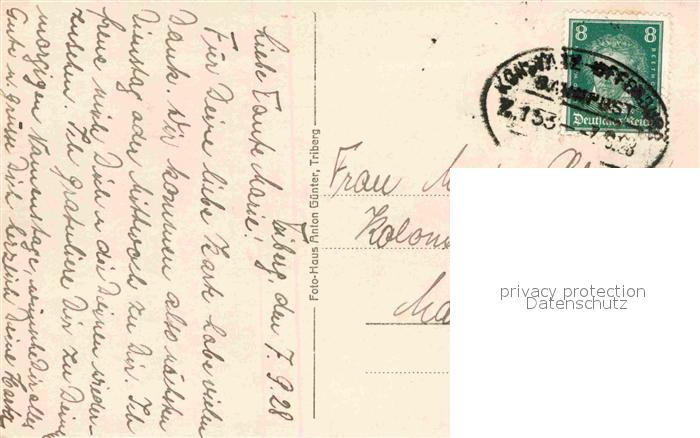 Triberg, den 7.9.28
Liebe Tante Marie!
Für Deine liebe Karte habe vielen
Dank. Wir kommen also nächsten
Dienstag oder Mittwoch zu Dir. Ich
freue mich Dich u. die Deinen wieder-
zusehen. Ich gratuliere Dir zu Deinem
morgigen Namenstage, wünsche Dir alles
Gute u. grüße Dich herzlich Deine
Foto-Haus Anton Günter, Triberg
8 8
BEETHOVEN
Deutsches Reich
KONSTANZ-OFFENBURG
BAHNPOST
Z.153
.9.28
Frau
privacy protection
Datenschutz